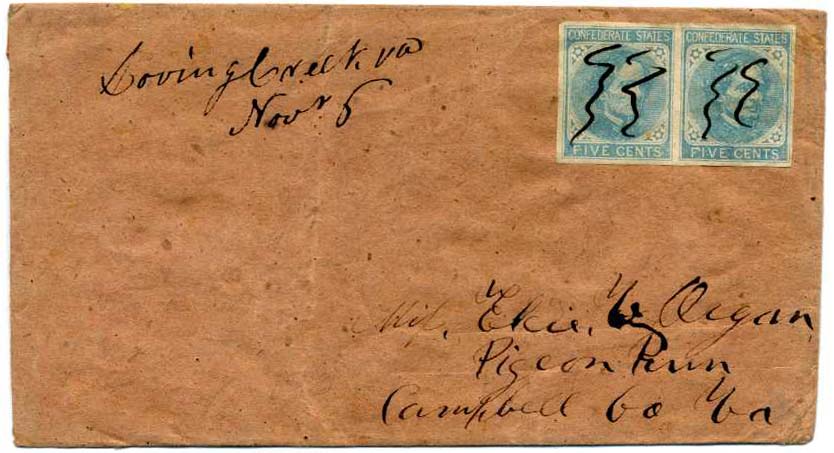 Loving Creek va
Novr 6
CONFEDERATE STATES
FIVE CENTS
CONFEDERATE STATES
FIVE CENTS
Pigeon Run
Campbell Co Va